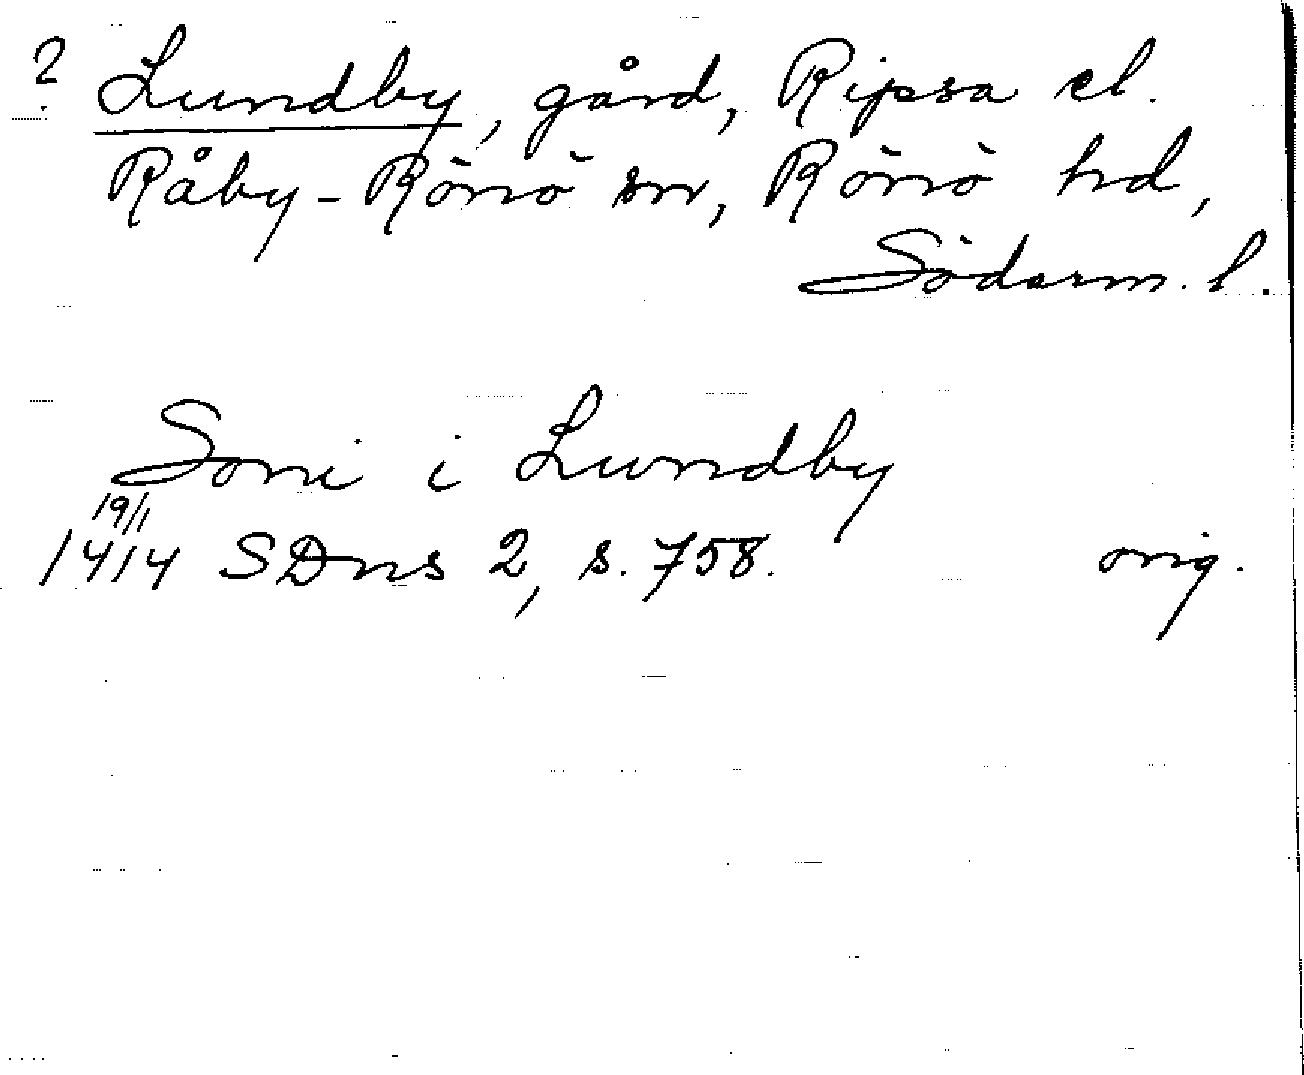 ? Lundby, gård, Ripsa el.
Råby-Rönö sn, Rönö hd,
Söderm. l.
Soni i Lundby
19/1
1414 SDns 2, s. 758. orig.